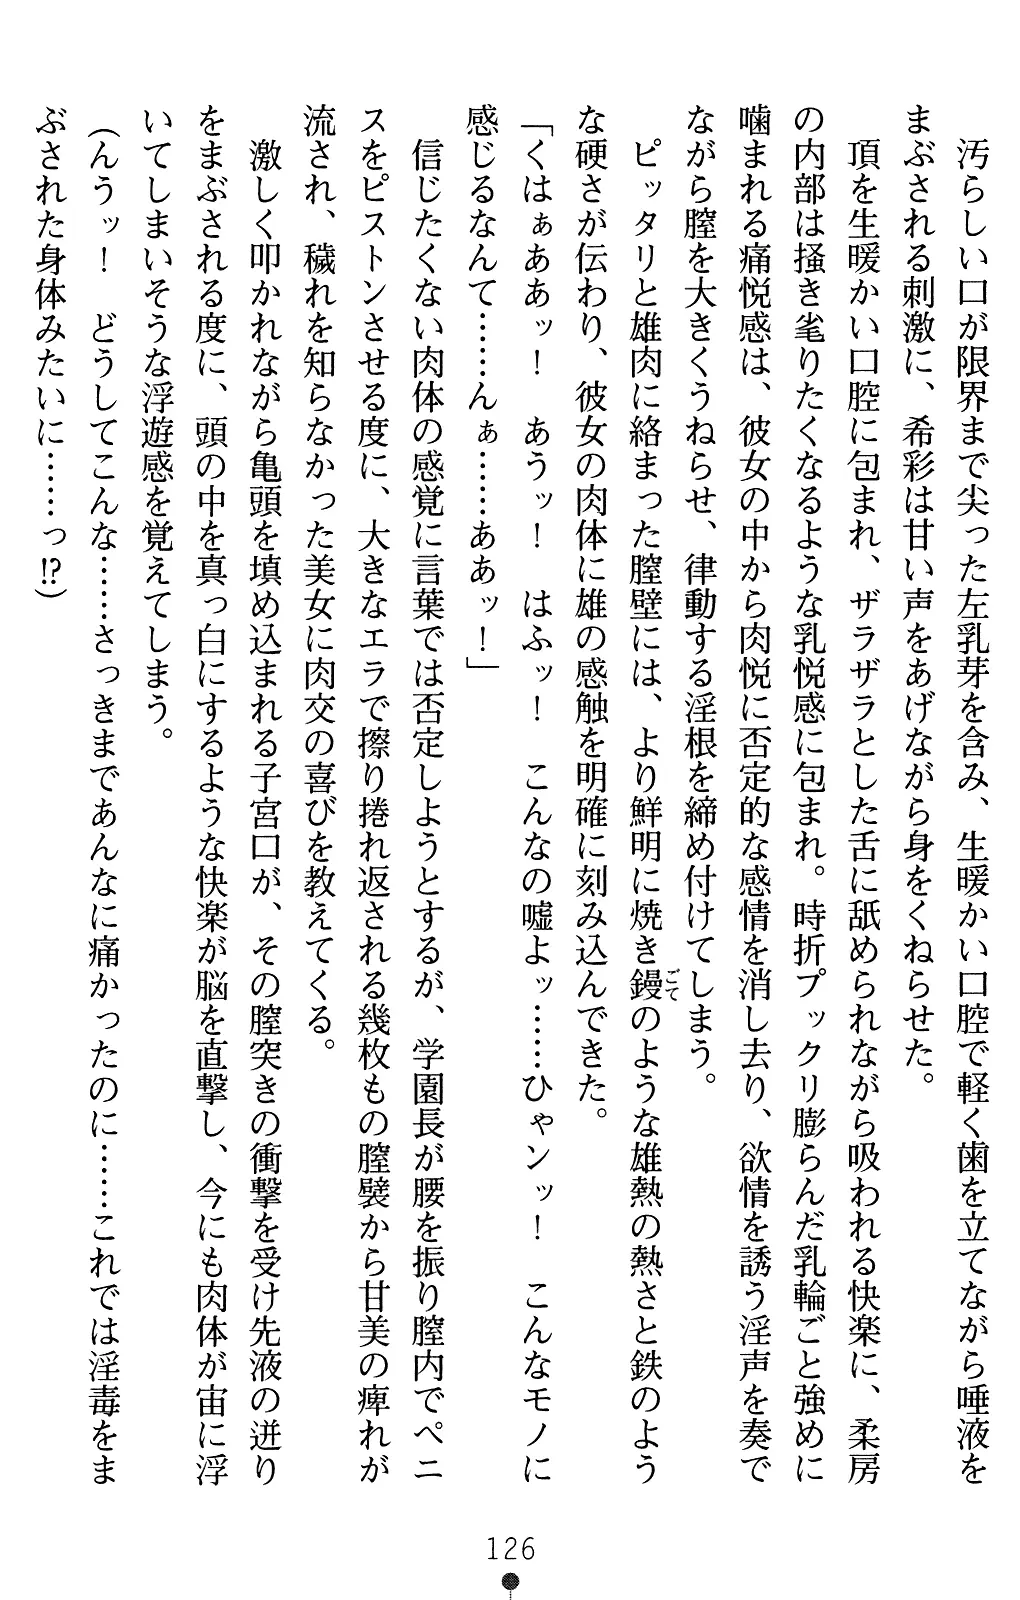 汚らしい口が限界まで尖った左乳芽を含み、生暖かい口腔で軽く歯を立てながら唾液を
まぶされる刺激に、希彩は甘い声をあげながら身をくねらせた。
頂を生暖かい口腔に包まれ、ザラザラとした舌に舐められながら吸われる快楽に、柔房
の内部は掻き毟りたくなるような乳悦感に包まれ。時折プックリ膨らんだ乳輪ごと強めに
噛まれる痛悦感は、彼女の中から肉悦に否定的な感情を消し去り、欲情を誘う淫声を奏で
ながら膣を大きくうねらせ、律動する淫根を締め付けてしまう。
ピッタリと雄肉に絡まった膣壁には、より鮮明に焼き鏝のような雄熱の熱さと鉄のよう
な硬さが伝わり、彼女の肉体に雄の感触を明確に刻み込んできた。
「くはぁああッ！　あうッ！　はふッ！　こんなの嘘よッ……ひゃンッ！　こんなモノに
感じるなんて……んぁ……ああッ！」
信じたくない肉体の感覚に言葉では否定しようとするが、学園長が腰を振り膣内でペニ
スをピストンさせる度に、大きなエラで擦り捲れ返される幾枚もの膣襞から甘美の痺れが
流され、穢れを知らなかった美女に肉交の喜びを教えてくる。
激しく叩かれながら亀頭を填め込まれる子宮口が、その膣突きの衝撃を受け先液の迸り
をまぶされる度に、頭の中を真っ白にするような快楽が脳を直撃し、今にも肉体が宙に浮
いてしまいそうな浮遊感を覚えてしまう。
（んうッ！　どうしてこんな……さっきまであんなに痛かったのに……これでは淫毒をま
ぶされた身体みたいに……っ!?）
126